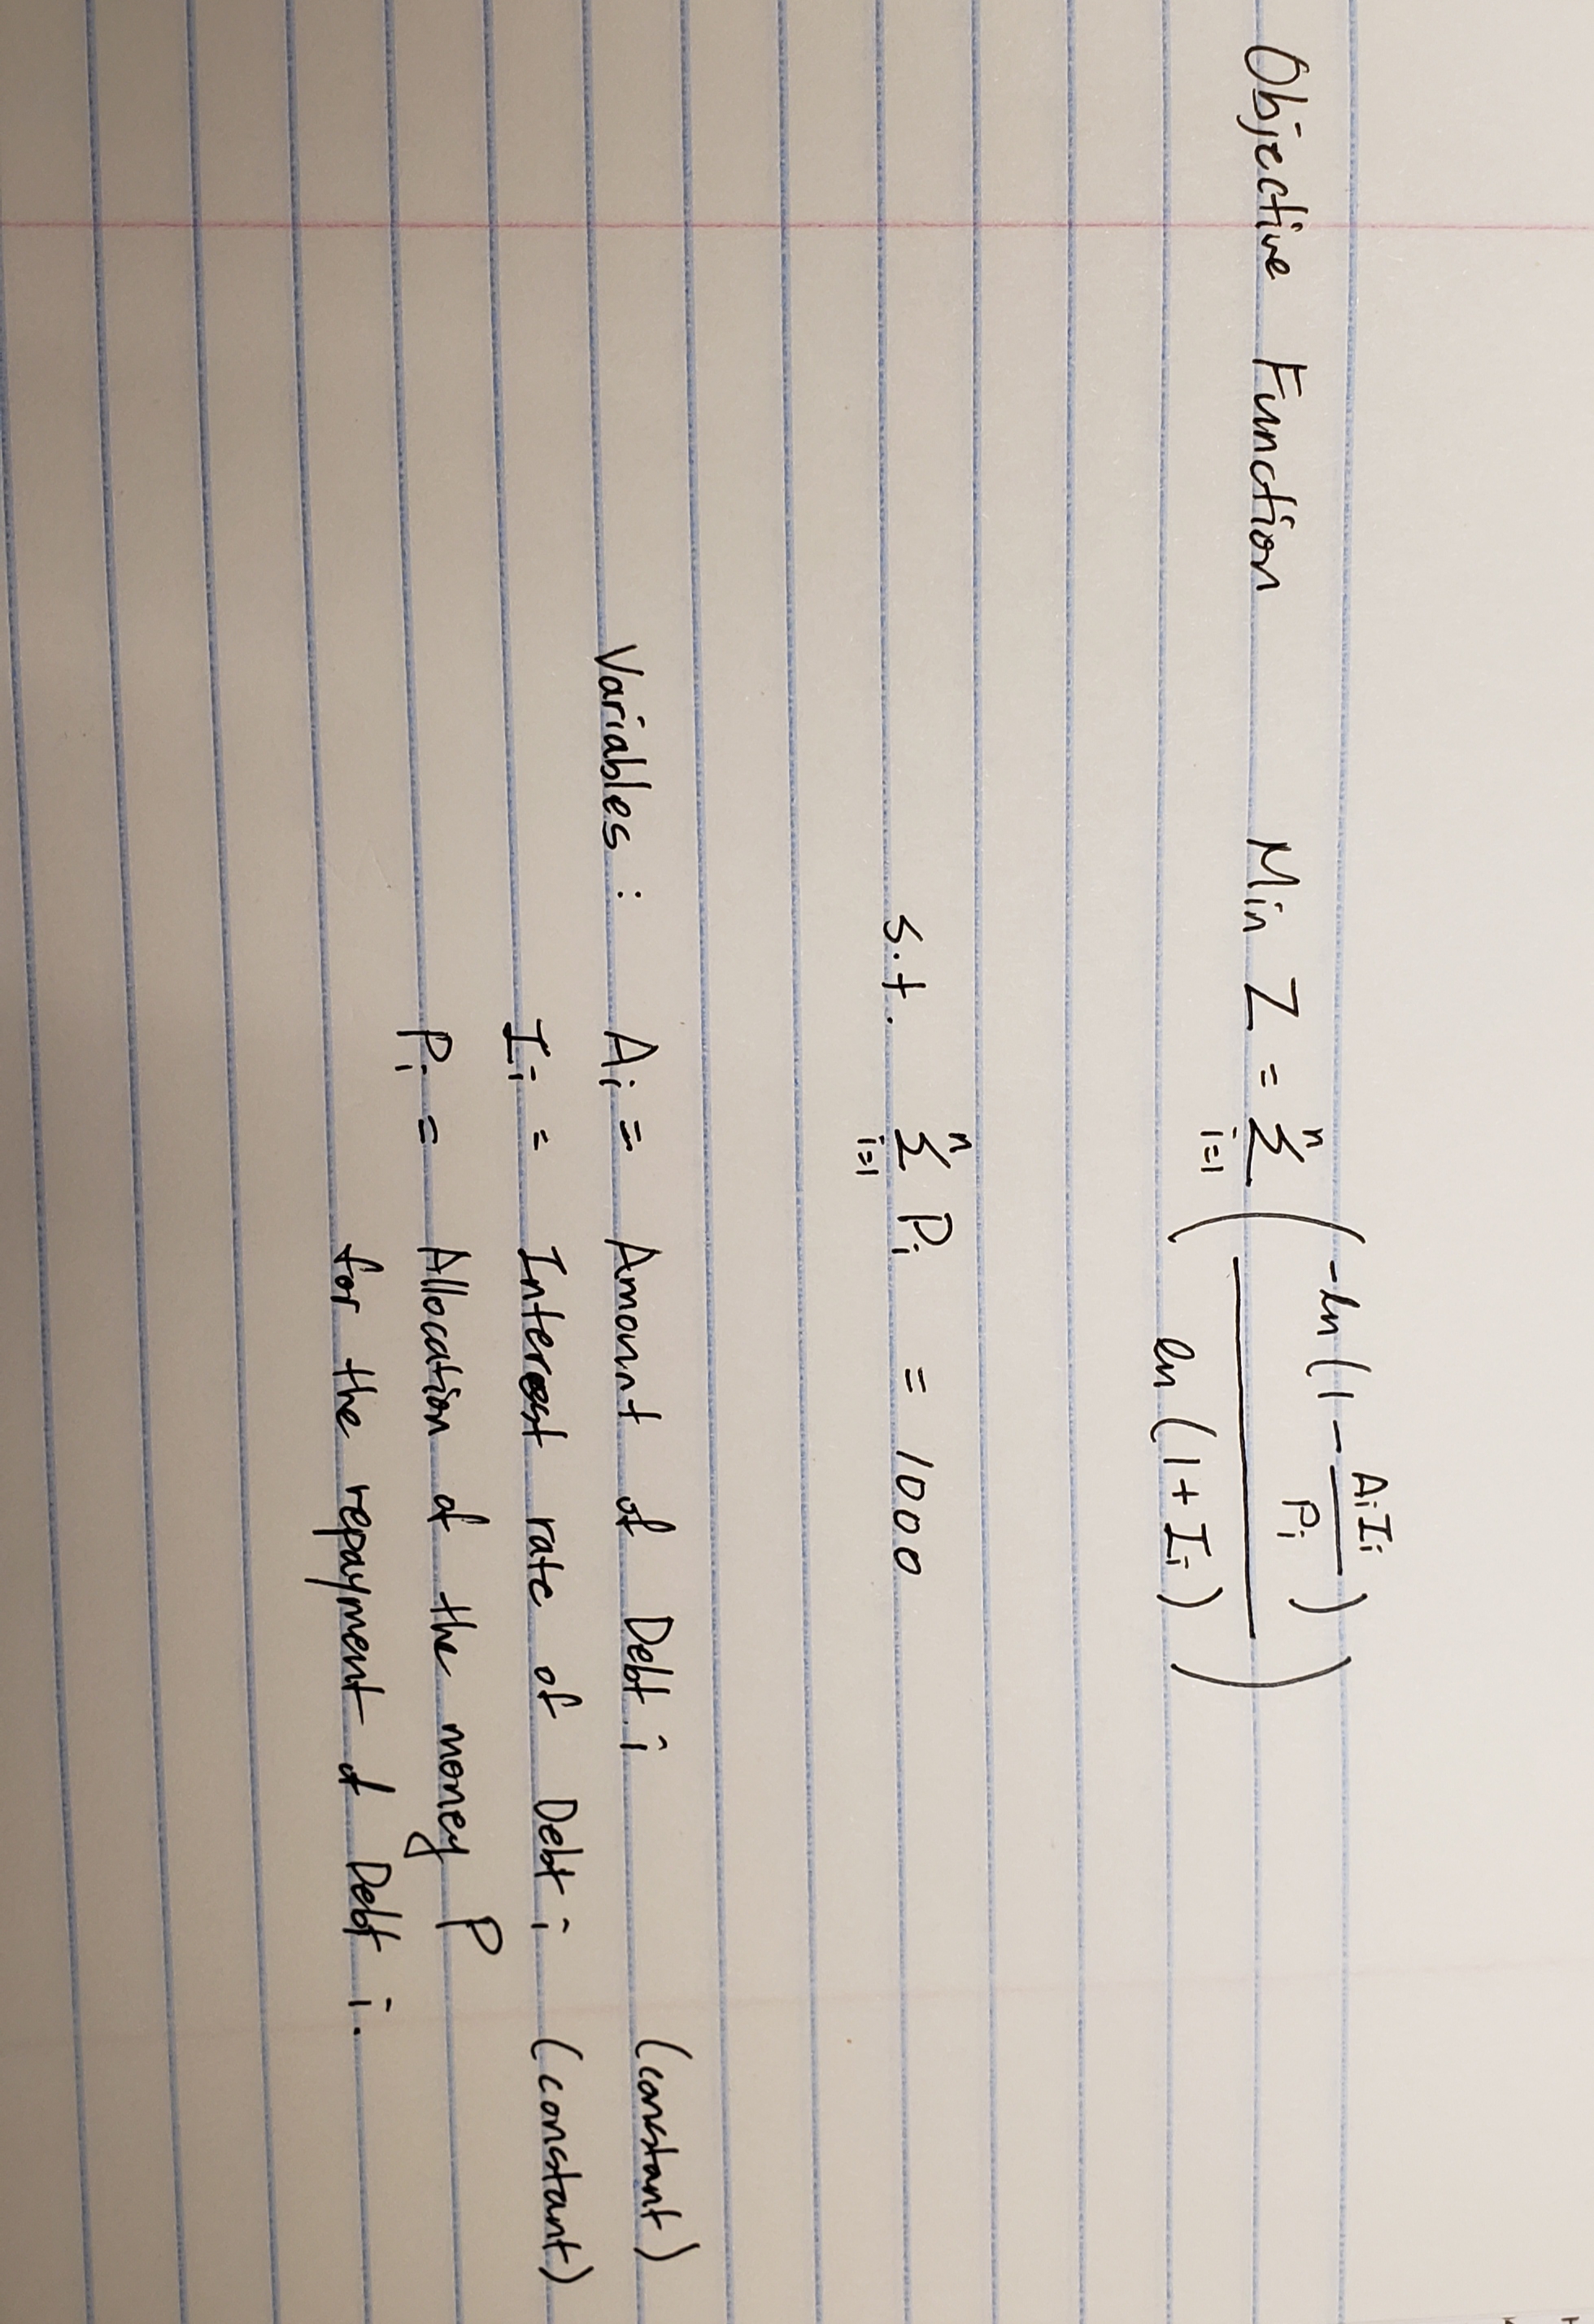 Objective Function Min Z = n Σ i=1 ( -ln (1 - AiIi / Pi) / ln (1 + Ii) )
s.t. n Σ i=1 Pi = 1000
Variables : Ai = Amount of Debt i (constant)
Ii = Interest rate of Debt i (constant)
Pi = Allocation of the money P
for the repayment of Debt i.